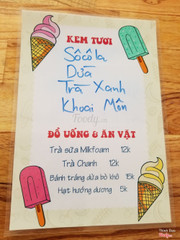 KEM TƯƠI
Sôcôla
Dừa
Trà Xanh
Khoai Môn
Foody.vn
ĐỒ UỐNG & ĂN VẶT
Trà sữa Milkfoam 12k
Trà Chanh 12k
Bánh tráng dừa bò khô 5k
Hạt hướng dương 15k